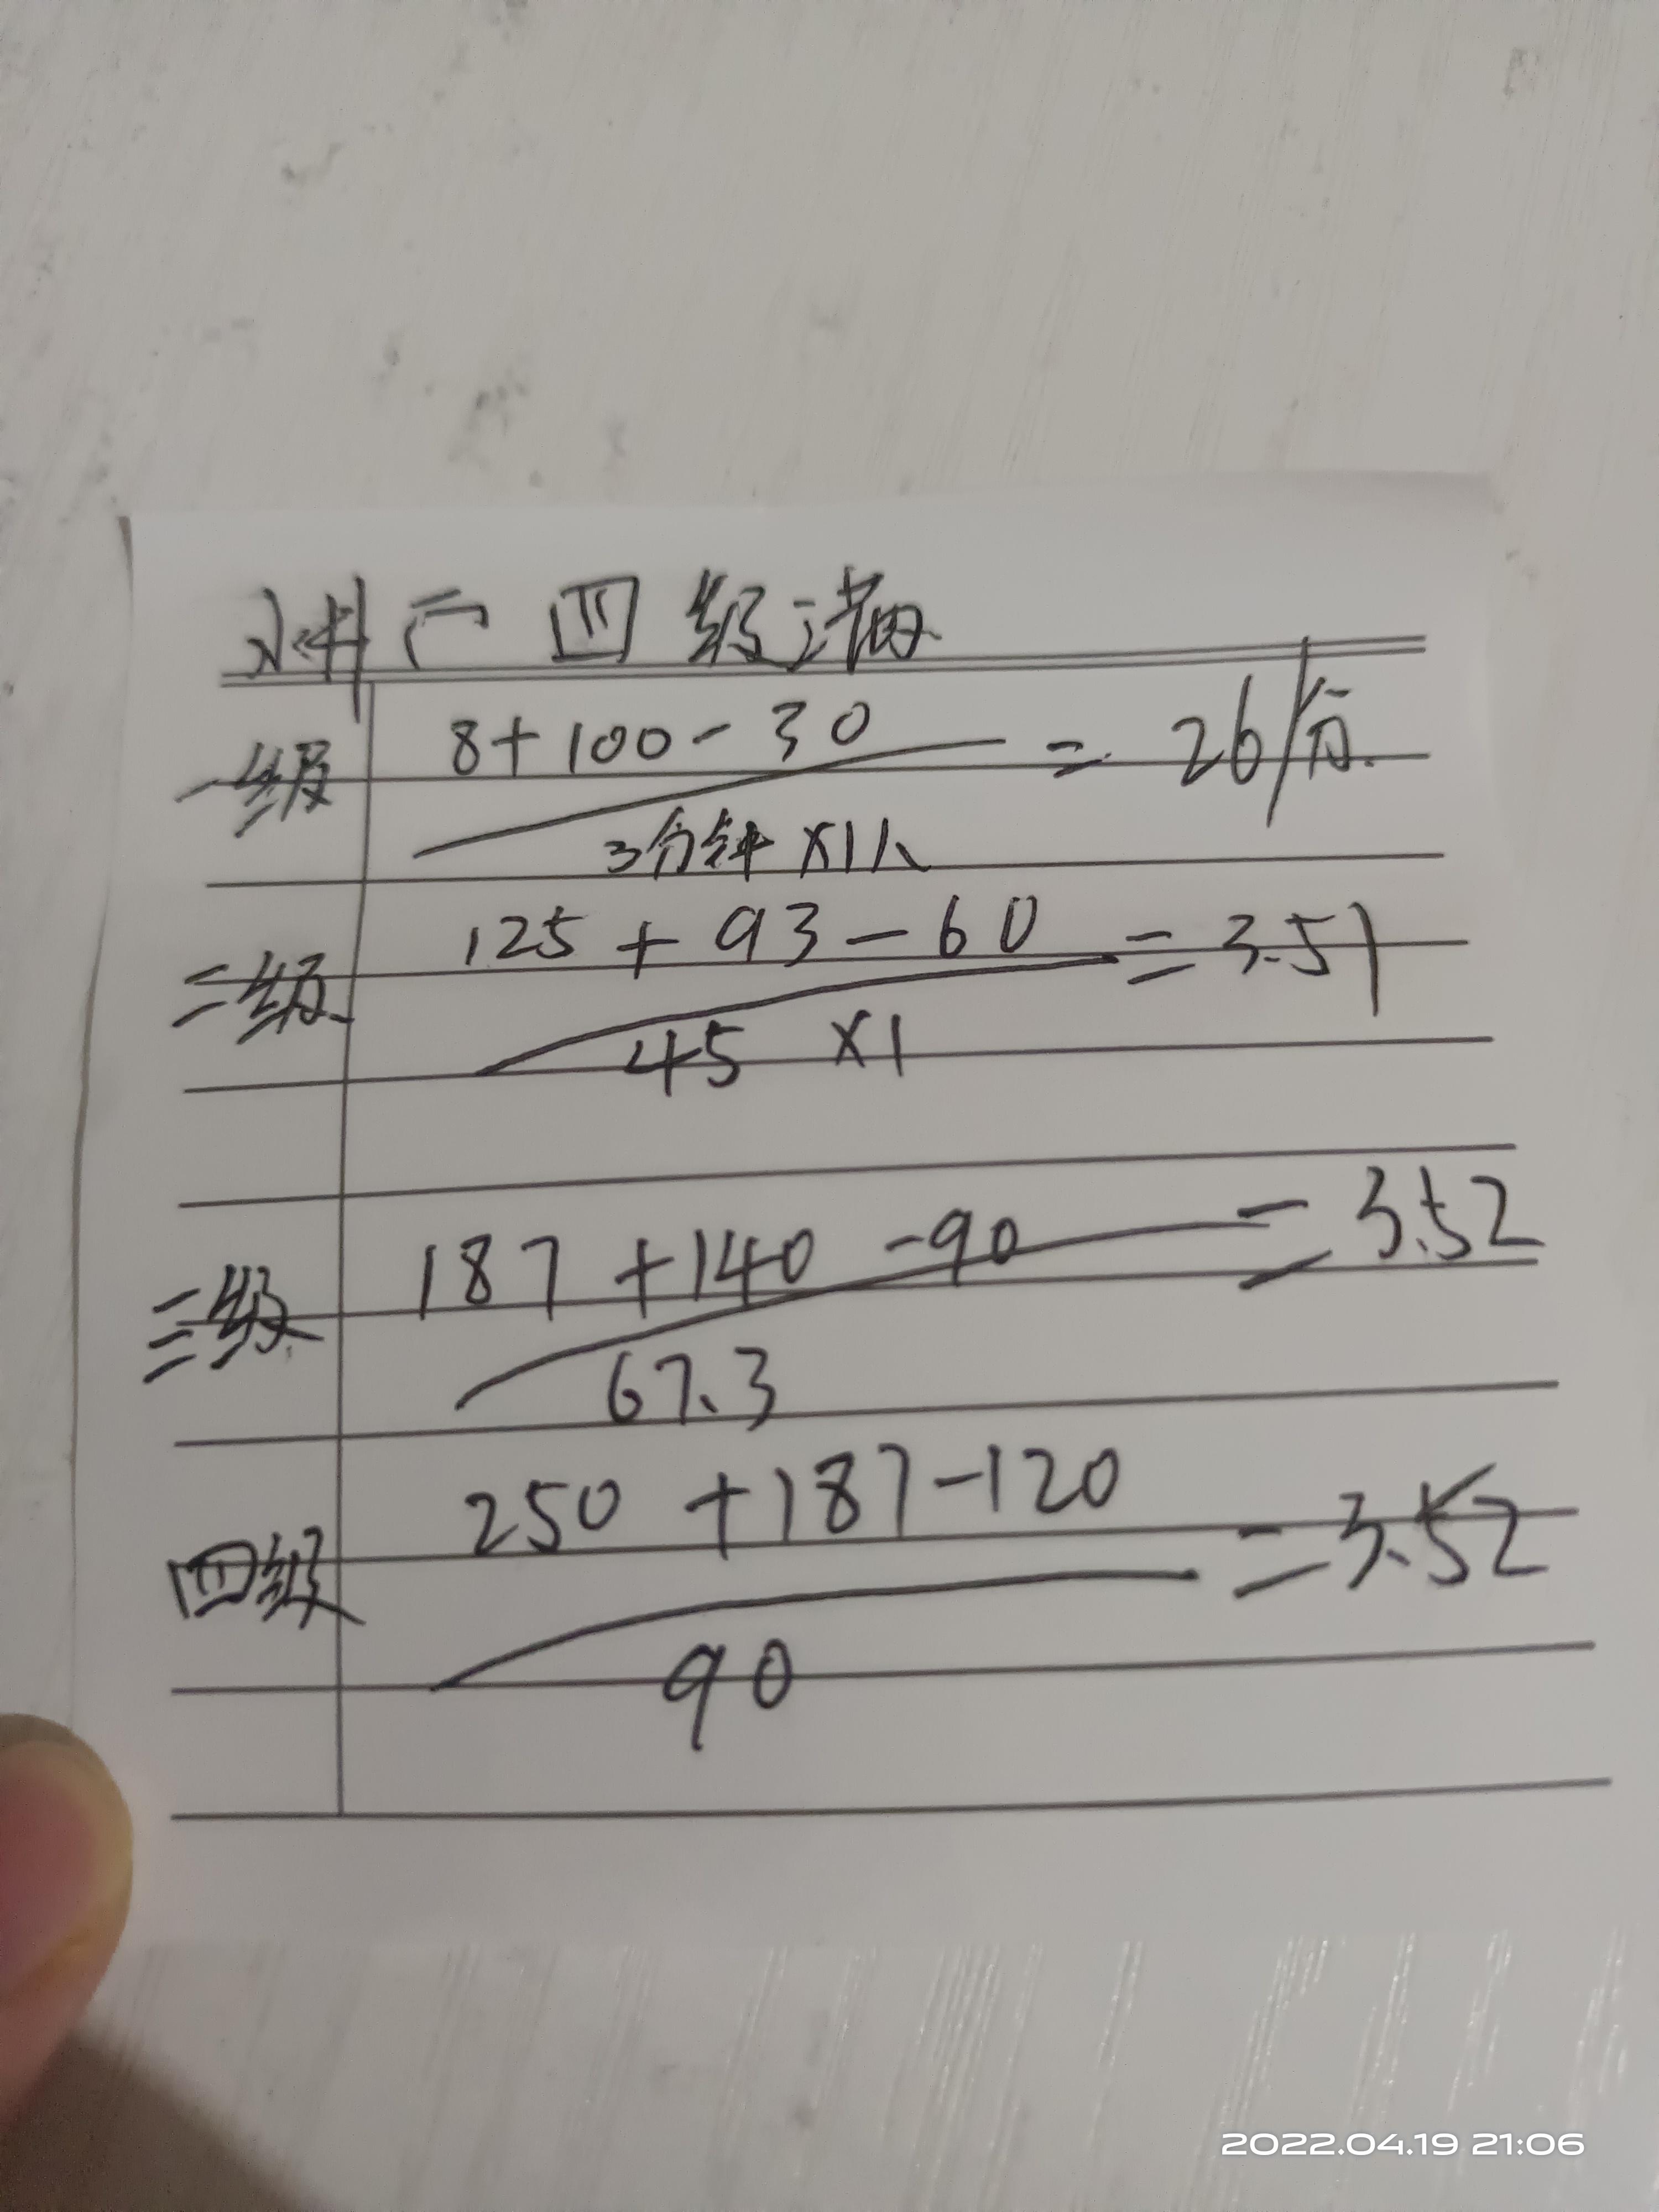 四级
8+100-30 = 26/分
一级
3分钟 X1人
125+93-60 = 3.51
二级
45 X1
187+140-90 = 3.52
三级
67.3
250+187-120 = 3.52
四级
90
2022.04.19 21:06